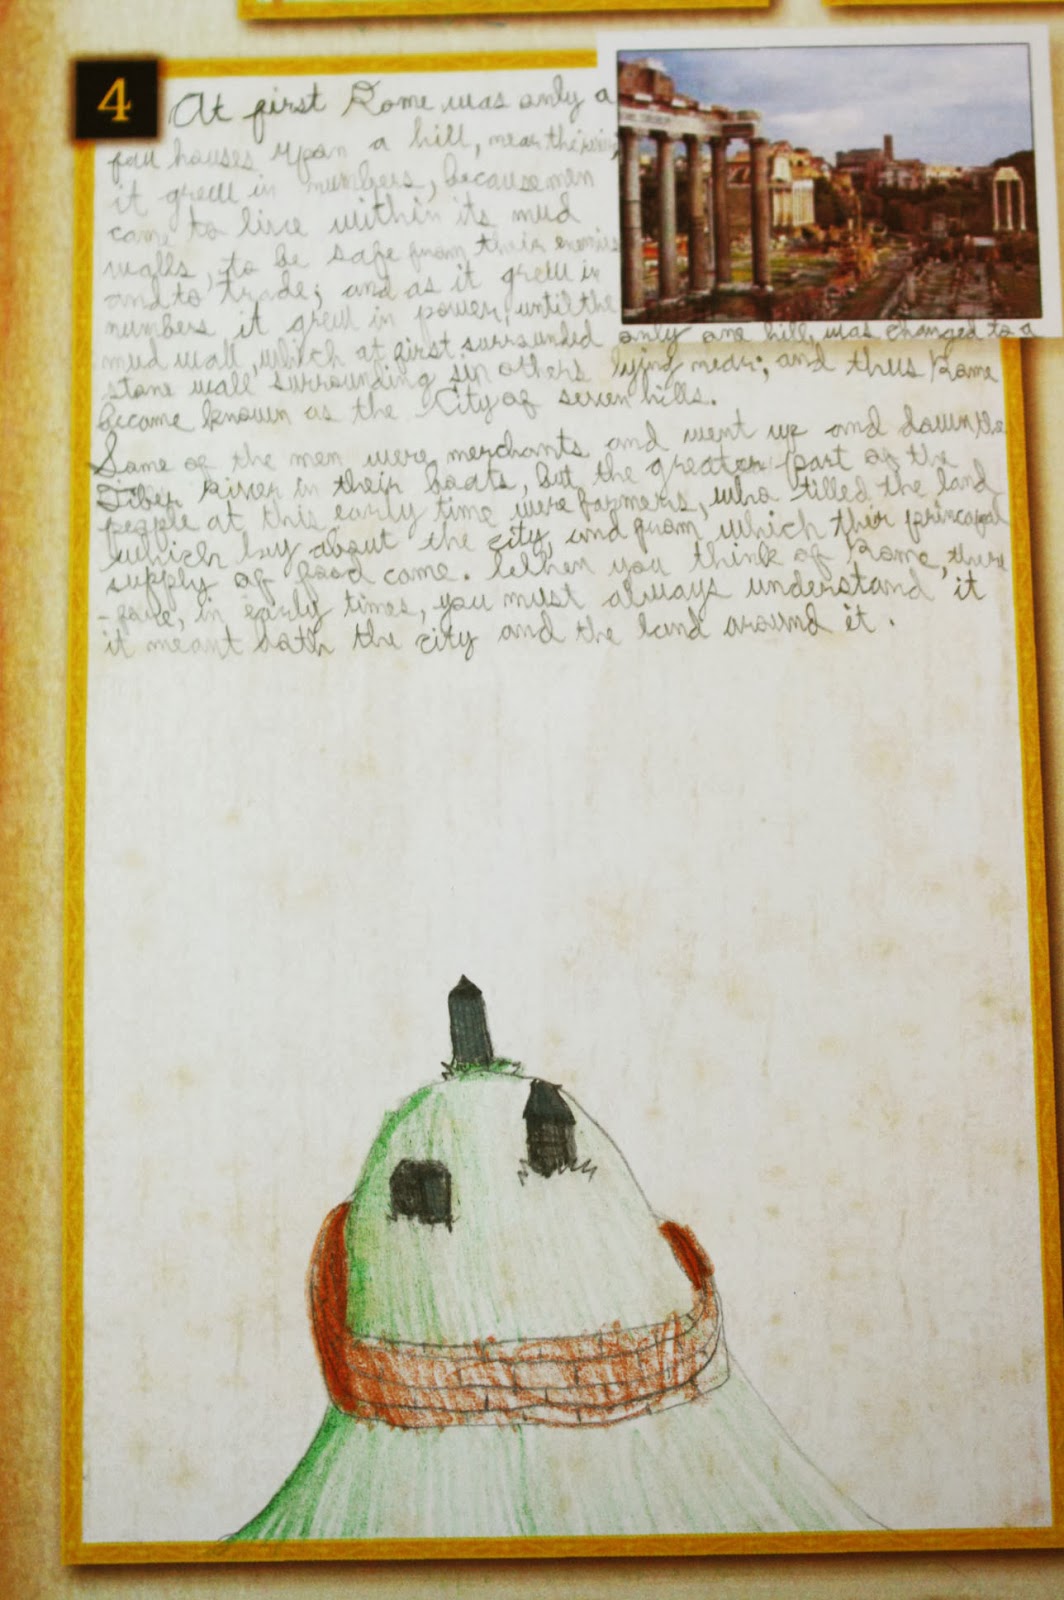 4
At first Rome was only a
few houses upon a hill, near the river;
it grew in numbers, because men
came to live within its mud
walls, to be safe from their enemies
and to trade; and as it grew in
numbers it grew in power, until the
mud wall, which at first surrounded only one hill, was changed to a
stone wall surrounding six others lying near; and thus Rome
became known as the City of seven hills.
Some of the men were merchants and went up and down the
Tiber River in their boats, but the greater part of the
people at this early time were farmers, who tilled the land
which lay about the city, and from which their principal
supply of food came. When you think of Rome, there
-fore, in early times, you must always understand it
it meant both the city and the land around it.